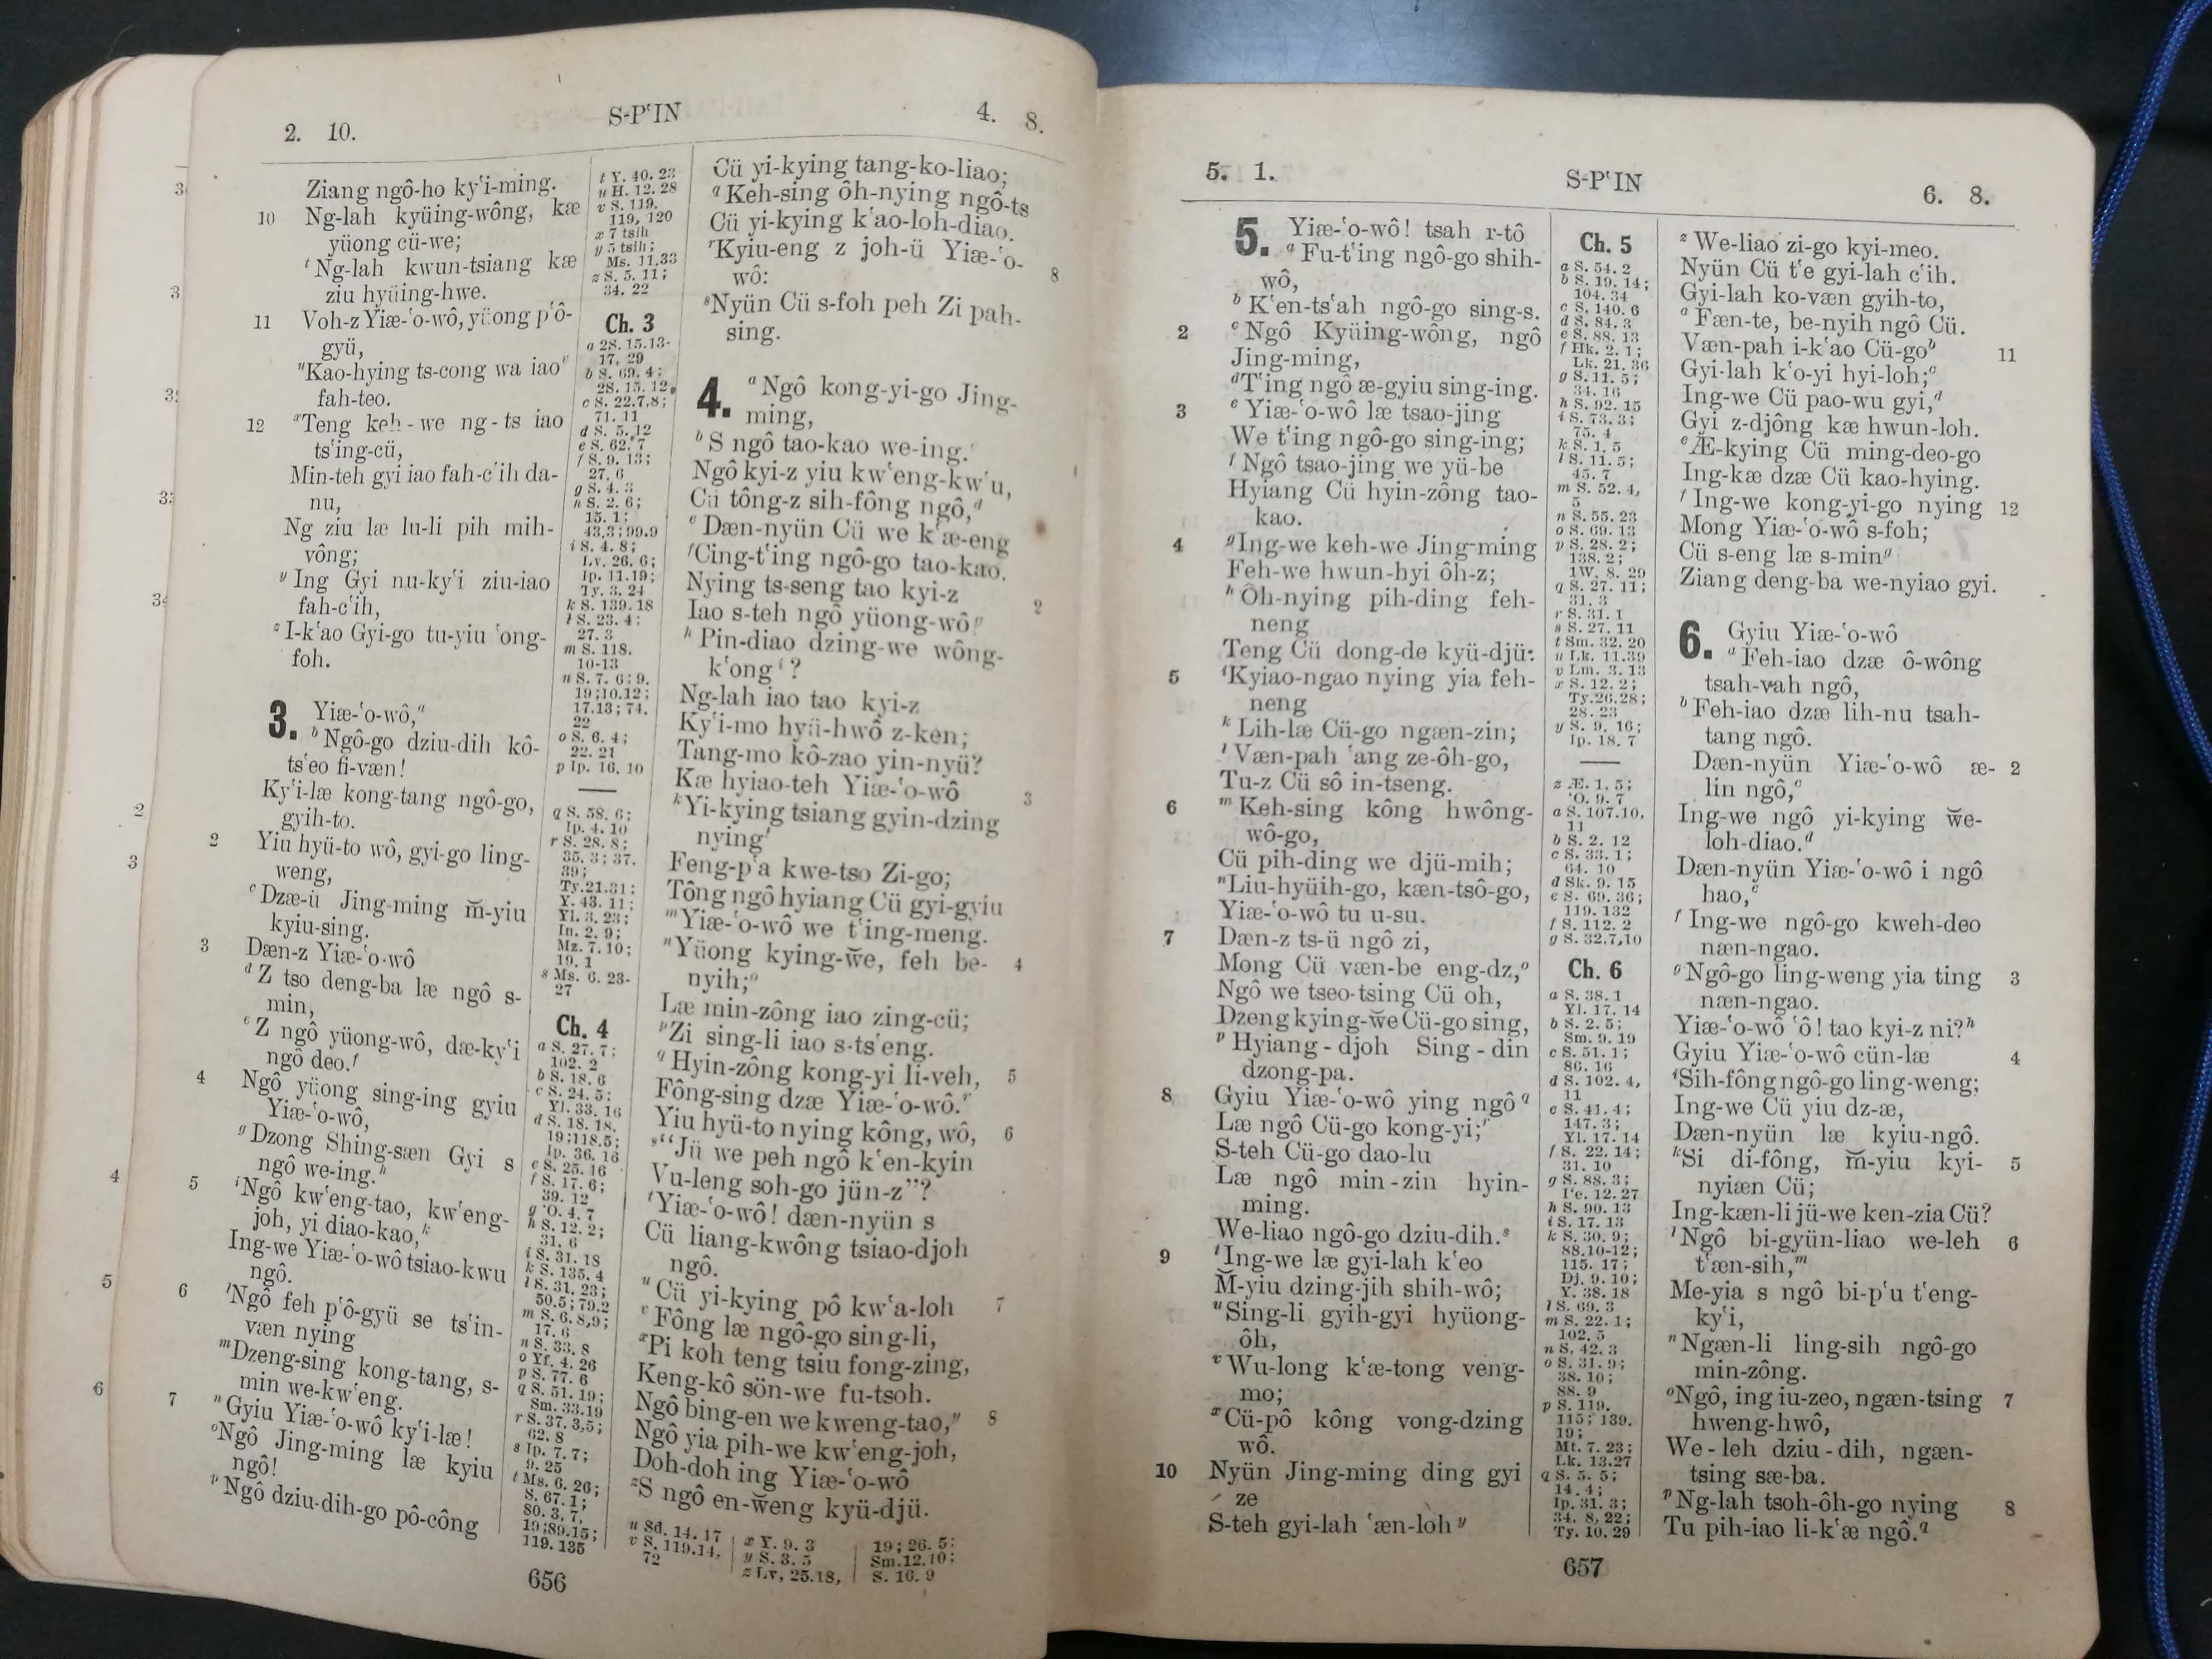 2. 10.
S-P‘IN
4. 8.
Ziang ngô-ho ky‘i-ming.
10 Ng-lah kyüing-wông, kæ
yüong cü-we;
t Ng-lah kwun-tsiang kæ
ziu hyüing-hwe.
11 Voh-z Yiæ-‘o-wô, yüong p‘ô-
gyü,
u Kao-hying ts-cong wa iao v
fah-teo.
12 x Teng keh-we ng-ts iao
ts‘ing-cü,
Min-teh gyi iao fah-c‘ih da-
nu,
Ng ziu læ lu-li pih mih-
vông;
y Ing Gyi nu-ky‘i ziu-iao
fah-c‘ih,
z I-k‘ao Gyi-go tu-yiu ‘ong-
foh.
3. Yiæ-‘o-wô, a
b Ngô-go dziu-dih kô-
ts‘eo fi-væn!
Ky‘i-læ kong-tang ngô-go,
gyih-to.
2 Yiu hyü-to wô, gyi-go ling-
weng,
c Dzæ-ü Jing-ming m̆-yiu
kyiu-sing.
3 Dæn-z Yiæ-‘o-wô
d Z tso deng-ba læ ngô s-
min,
e Z ngô yüong-wô, dæ-ky‘i
ngô deo. f
4 Ngô yüong sing-ing gyiu
Yiæ-‘o-wô,
g Dzong Shing-sæn Gyi s
ngô we-ing. h
5 i Ngô kw‘eng-tao, kw‘eng-
joh, yi diao-kao, k
Ing-we Yiæ-‘o-wô tsiao-kwu
ngô.
6 l Ngô feh p‘ô-gyü se ts‘in-
væn nying
m Dzeng-sing kong-tang, s-
min we-kw‘eng.
7 n Gyiu Yiæ-‘o-wô ky‘i-læ!
o Ngô Jing-ming læ kyiu
ngô!
p Ngô dziu-dih-go pô-công
t Y. 40. 23
u H. 12. 28
v S. 119.
119, 120
x 7 tsih
y 5 tsih;
Ms. 11.33
z S. 5. 11;
34. 22
Ch. 3
a 2S. 15.13-
17, 29
b S. 69. 4;
2S. 15. 12.
c S. 22.7,8;
71. 11
d S. 5. 12
e S. 62. 7
f S. 9. 13;
27. 6
g S. 4. 3
h S. 2. 6;
15. 1;
43.3; 99.9
i S. 4. 8;
Lv. 26. 6;
Ip. 11.19;
Ty. 3. 24
k S. 139. 18
l S. 23. 4;
27. 3
m S. 118.
10-13
n S. 7. 6; 9.
19; 10.12;
17.13; 74.
22
o S. 6. 4;
22. 21
p Ip. 16. 10
q S. 58. 6;
Ip. 4. 10
r S. 28. 8;
35. 3; 37.
39;
Ty. 21.31;
Y. 43. 11;
Yi. 3. 23;
In. 2. 9;
Mz. 7. 10;
19. 1
s Ms. 6. 23-
27
Ch. 4
a S. 27. 7;
102. 2
b S. 18. 6
c S. 24. 5;
Yl. 33. 16
d S. 18. 18,
19; 118.5;
Ip. 36. 16
e S. 25. 16
f S. 17. 6;
39. 12
g ‘O. 4. 7
h S. 12. 2;
31. 6
i S. 31. 18
k S. 135. 4
l S. 31. 23;
50.5; 79.2
m S. 6. 8,9;
17. 6
n S. 33. 8
o Yf. 4. 26
p S. 77. 6
q S. 51. 19;
Sm. 33.19
r S. 37. 3,5;
62. 8
s Ip. 7. 7;
9. 25
t Ms. 6. 26;
S. 67. 1;
80. 3, 7,
19; 89.15;
119. 135
Cü yi-kying tang-ko-liao;
q Keh-sing ôh-nying ngô-ts
Cü yi-kying k‘ao-loh-diao.
r Kyiu-eng z joh-ü Yiæ-‘o- 8
wô:
s Nyün Cü s-foh peh Zi pah-
sing.
4. a Ngô kong-yi-go Jing-
ming,
b S ngô tao-kao we-ing. c
Ngô kyi-z yiu kw‘eng-kw‘u,
Cü tông-z sih-fông ngô, d
e Dæn-nyün Cü we k‘æ-eng
f Cing-t‘ing ngô-go tao-kao.
Nying ts-seng tao kyi-z 2
Iao s-teh ngô yüong-wô g
h Pin-diao dzing-we wông-
k‘ong i?
Ng-lah iao tao kyi-z
Ky‘i-mo hyü-hwô z-ken;
Tang-mo kô-zao yin-nyü?
Kæ hyiao-teh Yiæ-‘o-wô 3
k Yi-kying tsiang gyin-dzing
nying l
Feng-p‘a kwe-tso Zi-go;
Tông ngô hyiang Cü gyi-gyiu
m Yiæ-‘o-wô we t‘ing-meng.
n Yüong kying-w̆e, feh be- 4
nyih; o
Læ min-zông iao zing-cü;
p Zi sing-li iao s-ts‘eng.
q Hyin-zông kong-yi li-veh, 5
Fông-sing dzæ Yiæ-‘o-wô. r
Yiu hyü-to nying kông, wô, 6
s “Jü we peh ngô k‘en-kyin
Vu-leng soh-go jün-z”?
t Yiæ-‘o-wô! dæn-nyün s
Cü liang-kwông tsiao-djoh
ngô.
u Cü yi-kying pô kw‘a-loh 7
v Fông læ ngô-go sing-li,
x Pi koh teng tsiu fong-zing,
Keng-kô sön-we fu-tsoh.
Ngô bing-en we kweng-tao, y 8
Ngô yia pih-we kw‘eng-joh,
Doh-doh ing Yiæ-‘o-wô
z S ngô en-w̆eng kyü-djü.
u Sd. 14. 17
v S. 119.14,
72
x Y. 9. 3
y S. 3. 5
z Lv, 25.18,
19; 26. 5;
Sm. 12. 10;
S. 16. 9
656
5. 1.
S-P‘IN
6. 8.
5. Yiæ-‘o-wô! tsah r-tô
a Fu-t‘ing ngô-go shih-
wô,
b K‘en-ts‘ah ngô-go sing-s.
2 c Ngô Kyüing-wông, ngô
Jing-ming,
d T‘ing ngô æ-gyiu sing-ing.
3 e Yiæ-‘o-wô læ tsao-jing
We t‘ing ngô-go sing-ing;
f Ngô tsao-jing we yü-be
Hyiang Cü hyin-zông tao-
kao.
4 g Ing-we keh-we Jing-ming
Feh-we hwun-hyi ôh-z;
h Ôh-nying pih-ding feh-
neng
Teng Cü dong-de kyü-djü:
5 i Kyiao-ngao nying yia feh-
neng
k Lih-læ Cü-go ngæn-zin;
l Væn-pah ‘ang ze-ôh-go,
Tu-z Cü sô in-tseng.
6 m Keh-sing kông hwông-
wô-go,
Cü pih-ding we djü-mih;
n Liu-hyüih-go, kæn-tsô-go,
Yiæ-‘o-wô tu u-su.
7 Dæn-z ts-ü ngô zi,
Mong Cü væn-be eng-dz, o
Ngô we tseo-tsing Cü oh,
Dzeng kying-w̆e Cü-go sing,
p Hyiang-djoh Sing-din
dzong-pa.
8 Gyiu Yiæ-‘o-wô ying ngô q
Læ ngô Cü-go kong-yi; r
S-teh Cü-go dao-lu
Læ ngô min-zin hyin-
ming.
We-liao ngô-go dziu-dih. s
9 t Ing-we læ gyi-lah k‘eo
M̆-yiu dzing-jih shih-wô;
u Sing-li gyih-gyi hyüong-
ôh,
v Wu-long k‘æ-tong veng-
mo;
x Cü-pô kông vong-dzing
wô.
10 Nyün Jing-ming ding gyi
ze
S-teh gyi-lah ‘æn-loh y
Ch. 5
a S. 54. 2
b S. 19. 14;
104. 34
c S. 140. 6
d S. 84. 3
e S. 88. 13
f Hk. 2. 1;
Lk. 21. 36
g S. 11. 5;
34. 16
h S. 92. 15
i S. 73. 3;
75. 4
k S. 1. 5
l S. 11. 5;
45. 7
m S. 52. 4,
5
n S. 55. 23
o S. 69. 13
p S. 28. 2;
138. 2;
1W. 8. 29
q S. 27. 11;
31. 3
r S. 31. 1
s S. 27. 11
t Sm. 32. 20
u Lk. 11.39
v Lm. 3. 13
x S. 12. 2;
Ty.26.28;
28. 23
y S. 9. 16;
Ip. 18. 7
z Æ. 1. 5;
‘O. 9. 7
a S. 107.10,
11
b S. 2. 12
c S. 33. 1;
64. 10
d Sk. 9. 15
e S. 69. 36;
119. 132
f S. 112. 2
g S. 32.7,10
Ch. 6
a S. 38. 1
Yl. 17. 14
b S. 2. 5;
Sm. 9. 19
c S. 51. 1;
86. 16
d S. 102. 4,
11
e S. 41. 4;
147. 3;
Yl. 17. 14
f S. 22. 14;
31. 10
g S. 88. 3;
I‘e. 12. 27
h S. 90. 13
i S. 17. 13
k S. 30. 9;
88.10-12;
115. 17;
Dj. 9. 10;
Y. 38. 18
l S. 69. 3
m S. 22. 1;
102. 5
n S. 42. 3
o S. 31. 9;
38. 10;
88. 9
p S. 119.
115; 139.
19;
Mt. 7. 23;
Lk. 13.27
q S. 5. 5;
14. 4;
Ip. 31. 3;
34. 8, 22;
Ty. 10. 29
z We-liao zi-go kyi-meo.
Nyün Cü t‘e gyi-lah c‘ih.
Gyi-lah ko-væn gyih-to,
a Fæn-te, be-nyih ngô Cü.
Væn-pah i-k‘ao Cü-go b 11
Gyi-lah k‘o-yi hyi-loh; c
Ing-we Cü pao-wu gyi, d
Gyi z-djông kæ hwun-loh.
e Æ-kying Cü ming-deo-go
Ing-kæ dzæ Cü kao-hying.
f Ing-we kong-yi-go nying 12
Mong Yiæ-‘o-wô s-foh;
Cü s-eng læ s-min g
Ziang deng-ba we-nyiao gyi.
6. Gyiu Yiæ-‘o-wô
a Feh-iao dzæ ô-wông
tsah-vah ngô,
b Feh-iao dzæ lih-nu tsah-
tang ngô.
Dæn-nyün Yiæ-‘o-wô æ- 2
lin ngô, c
Ing-we ngô yi-kying w̆e-
loh-diao. d
Dæn-nyün Yiæ-‘o-wô i ngô
hao, e
f Ing-we ngô-go kweh-deo
næn-ngao.
g Ngô-go ling-weng yia ting 3
næn-ngao.
Yiæ-‘o-wô ‘ô! tao kyi-z ni? h
Gyiu Yiæ-‘o-wô cün-læ 4
i Sih-fông ngô-go ling-weng;
Ing-we Cü yiu dz-æ,
Dæn-nyün læ kyiu-ngô.
k Si di-fông, m̆-yiu kyi- 5
nyiæn Cü;
Ing-kæn-li jü-we ken-zia Cü?
l Ngô bi-gyün-liao we-leh 6
t‘æn-sih, m
Me-yia s ngô bi-p‘u t‘eng-
ky‘i,
n Ngæn-li ling-sih ngô-go
min-zông.
o Ngô, ing iu-zeo, ngæn-tsing 7
hweng-hwô,
We-leh dziu-dih, ngæn-
tsing sæ-ba.
p Ng-lah tsoh-ôh-go nying 8
Tu pih-iao li-k‘æ ngô. q
657